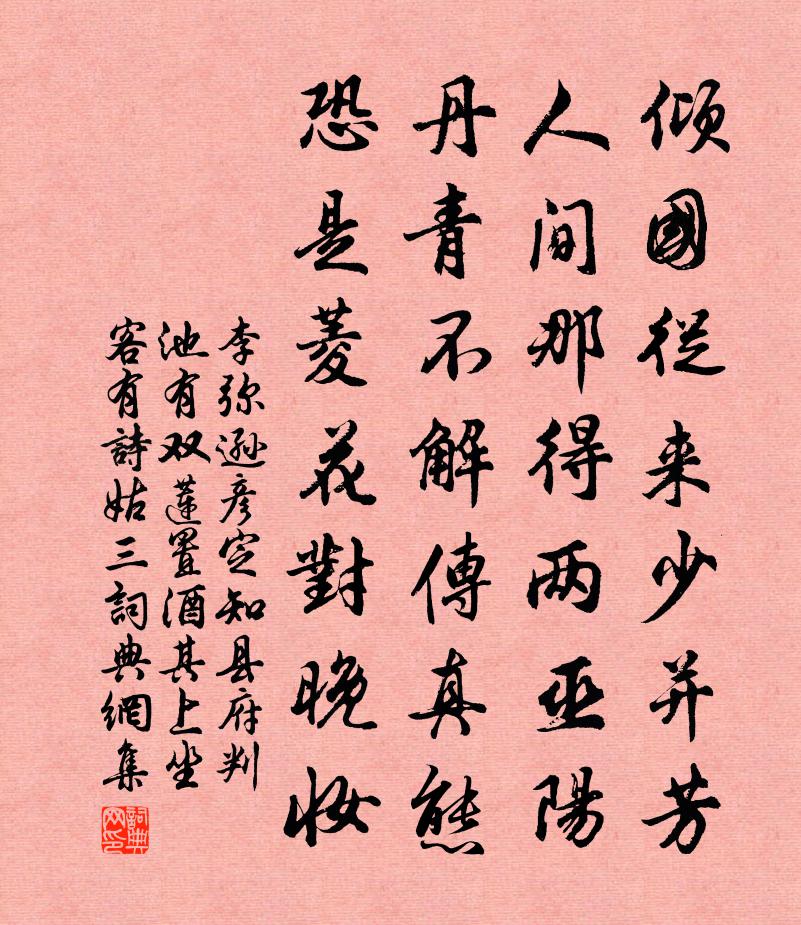 傾國從来少并芳
人间那得两巫陽
丹青不解傳真態
恐是菱花對晚妆
李弥遜彦定知县府判
池有双莲置酒其上坐
客有詩姑三詞典網集
詞典网印